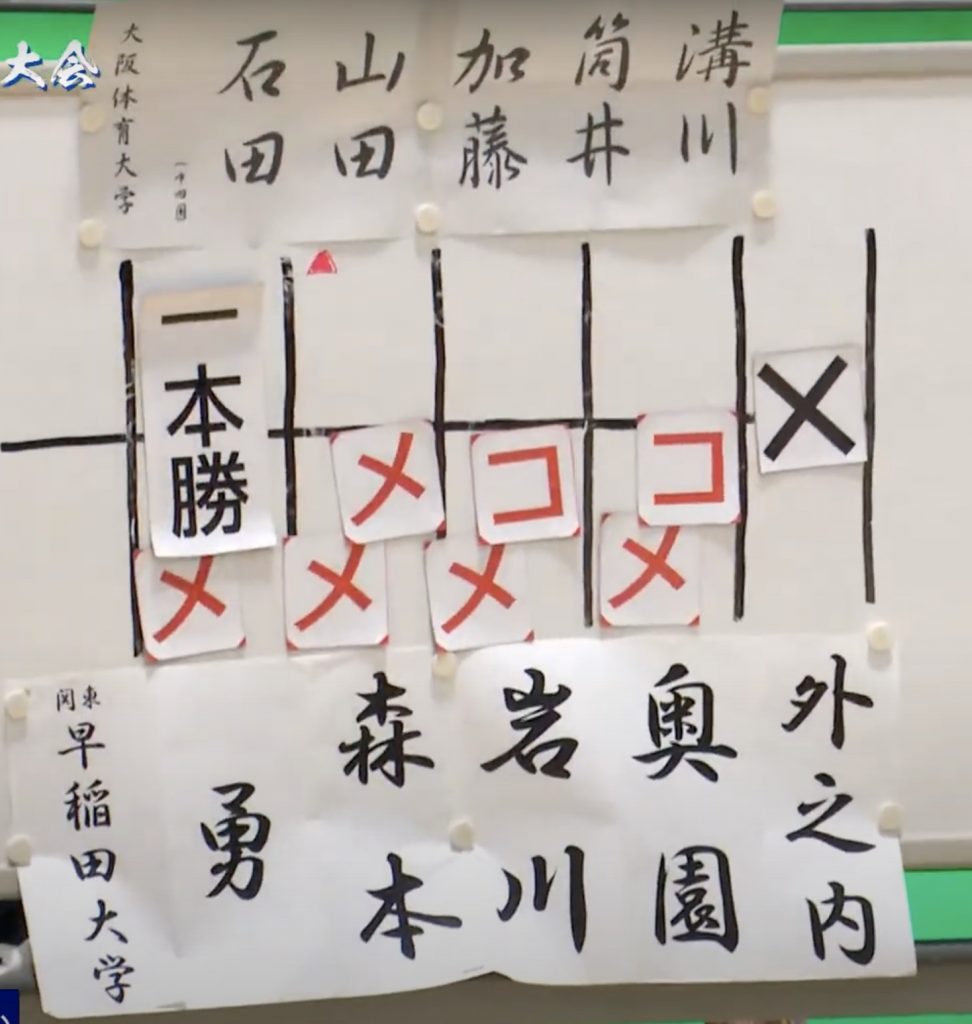 大会
溝川
筒井
加藤
山田
石田
大阪体育大学
×
コ
メ
コ
メ
メ
メ
一本勝
メ
外之内
奥園
岩川
森本
勇
関東
早稲田大学